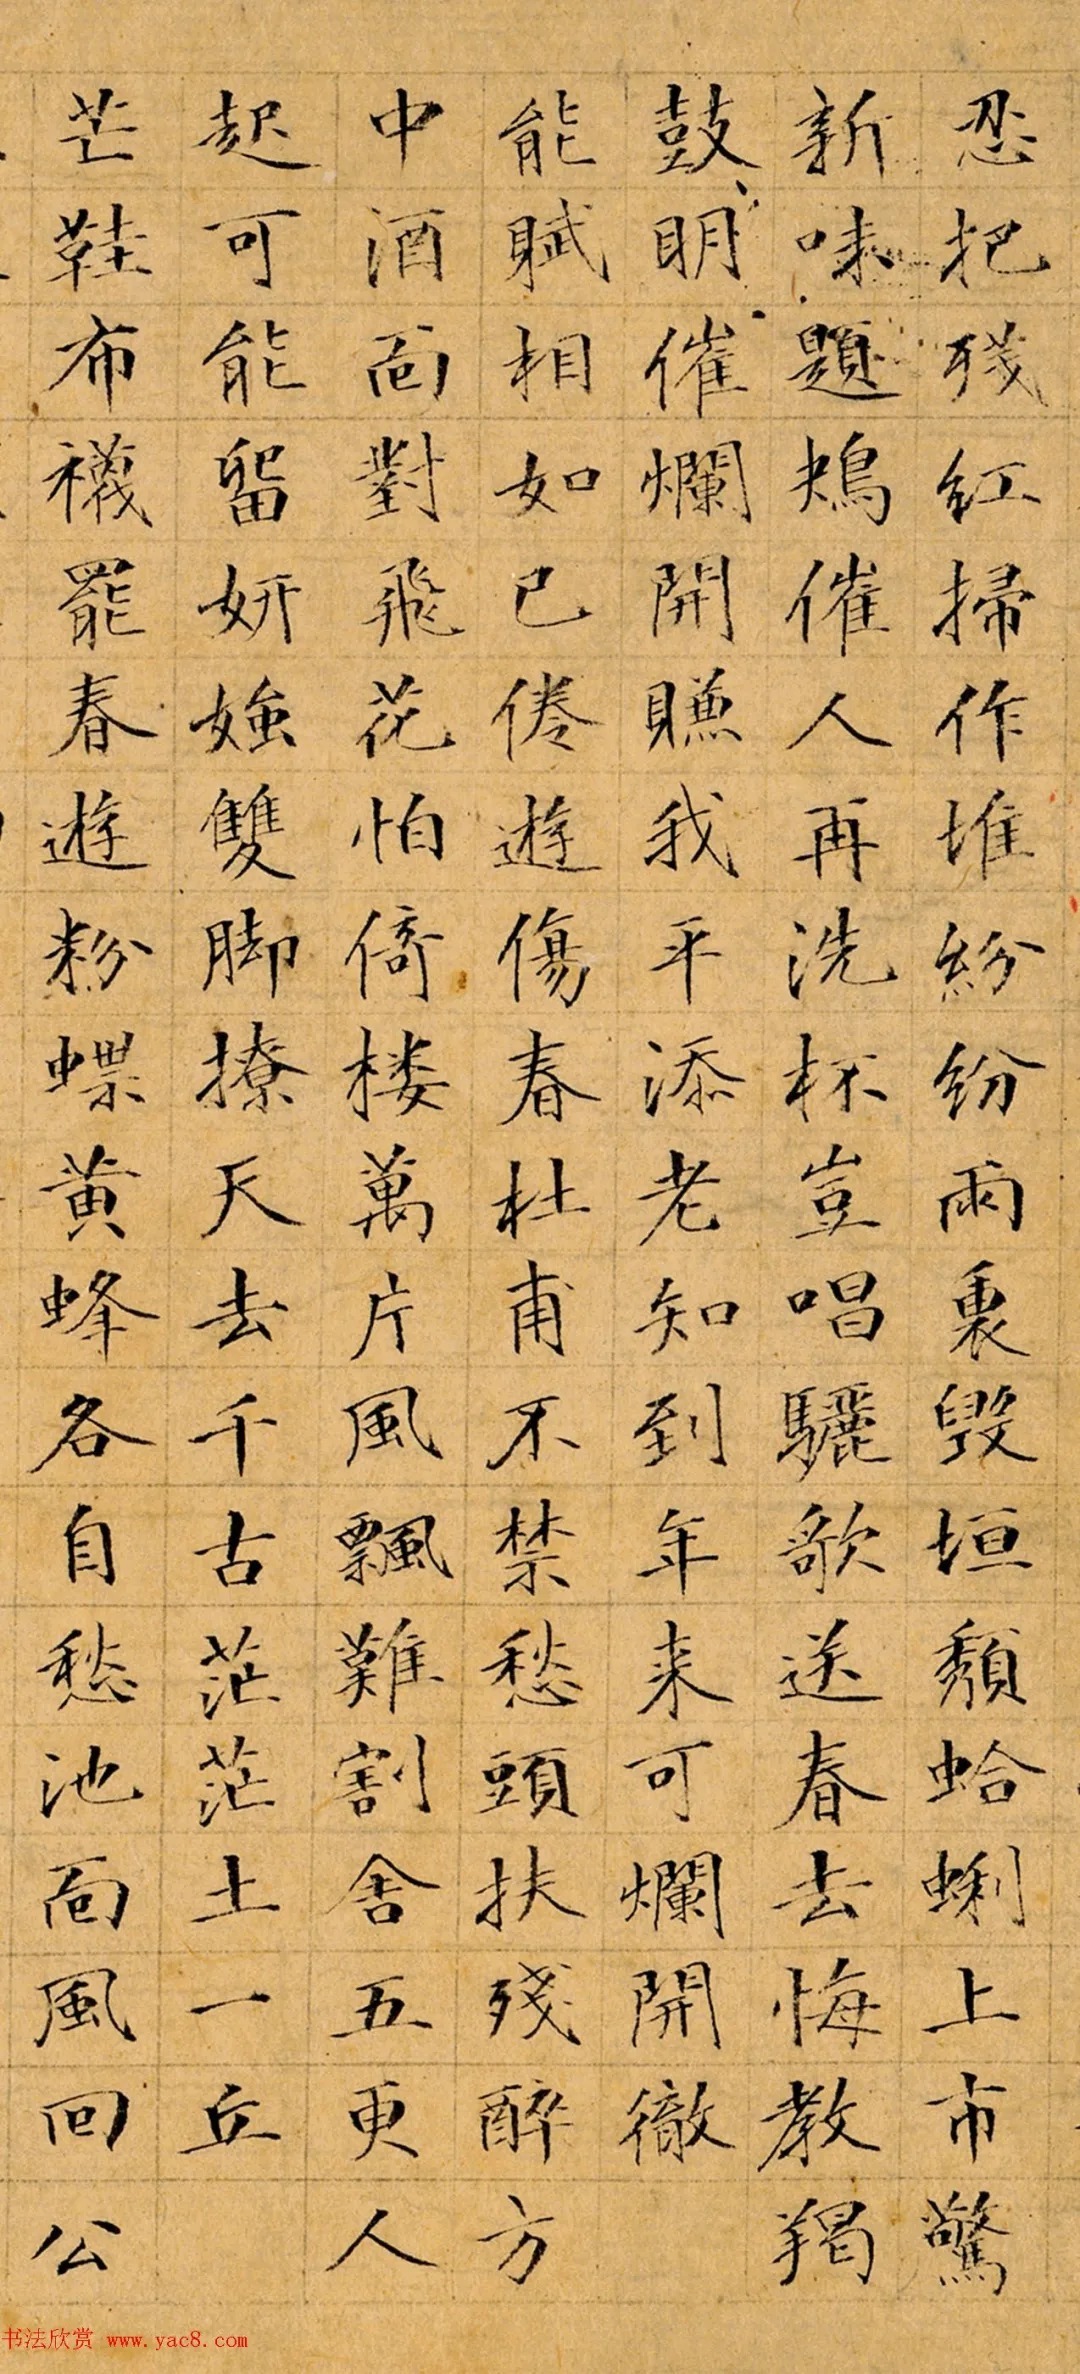 忍把殘紅掃作堆紛紛雨裏毀垣頹蛤蜊上市驚
新味題鴂催人再洗杯豈唱驪歌送春去悔教羯
鼓明催爛開賺我平添老知到年來可爛開徹
能賦相如已倦遊傷春杜甫不禁愁頭扶殘醉方
中酒面對飛花怕倚楼萬片風飄難割舍五更人
起可能留妍媸雙脚撩天去千古茫茫土一丘
芒鞋布襪罷春遊粉蝶黄蜂各自愁池面風回公
书法欣赏 www.yac8.com